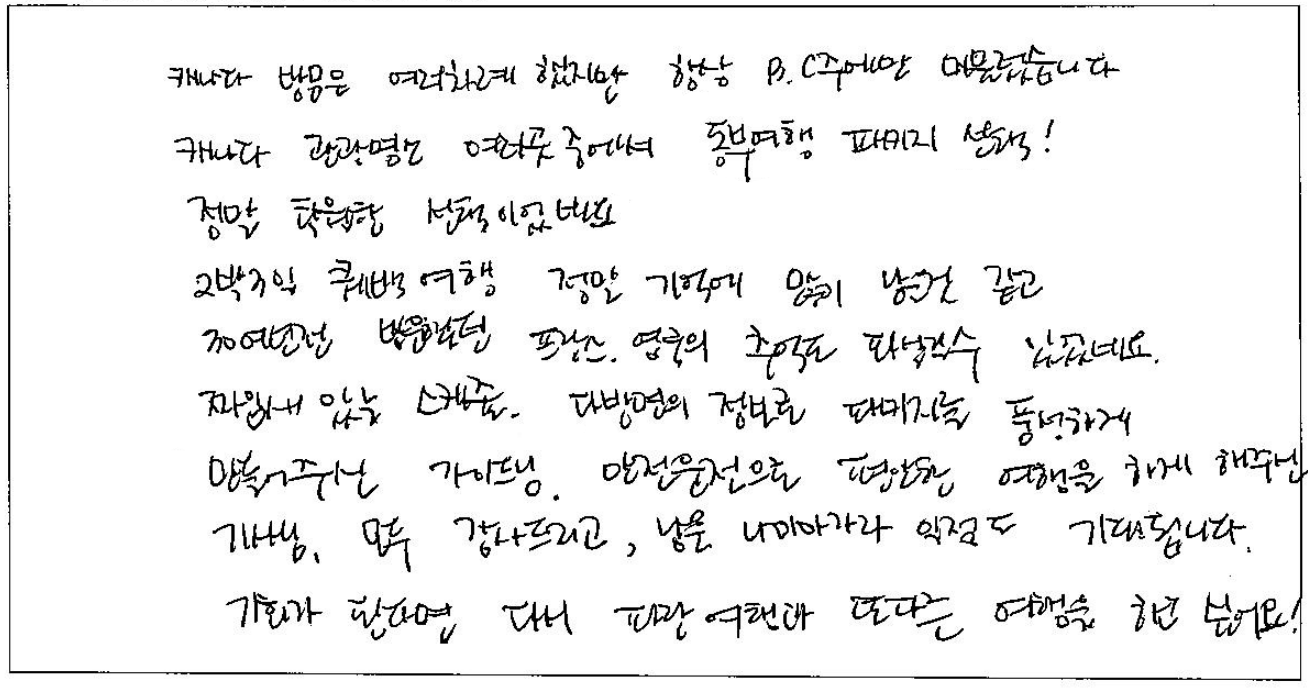 캐나다 방문은 여러차례 했지만 항상 B.C주에만 머물렀습니다
캐나다 관광명소 여러곳 중에서 동부여행 패키지 선택!
정말 탁월한 선택이었네요
2박3일 퀘백여행 정말 기억에 많이 남을것 같고
30여년전 방문했던 프랑스. 영국의 추억도 되살릴수 있었네요.
짜임새 있는 스케쥴. 다방면의 정보로 패키지를 풍성하게
만들어주시는 가이드님. 안전운전으로 편안한 여행을 하게 해주신
기사님. 모두 감사드리고, 남은 나이아가라 일정도 기대됩니다.
기회가 된다면 다시 파란여행과 또다른 여행을 하고 싶어요!